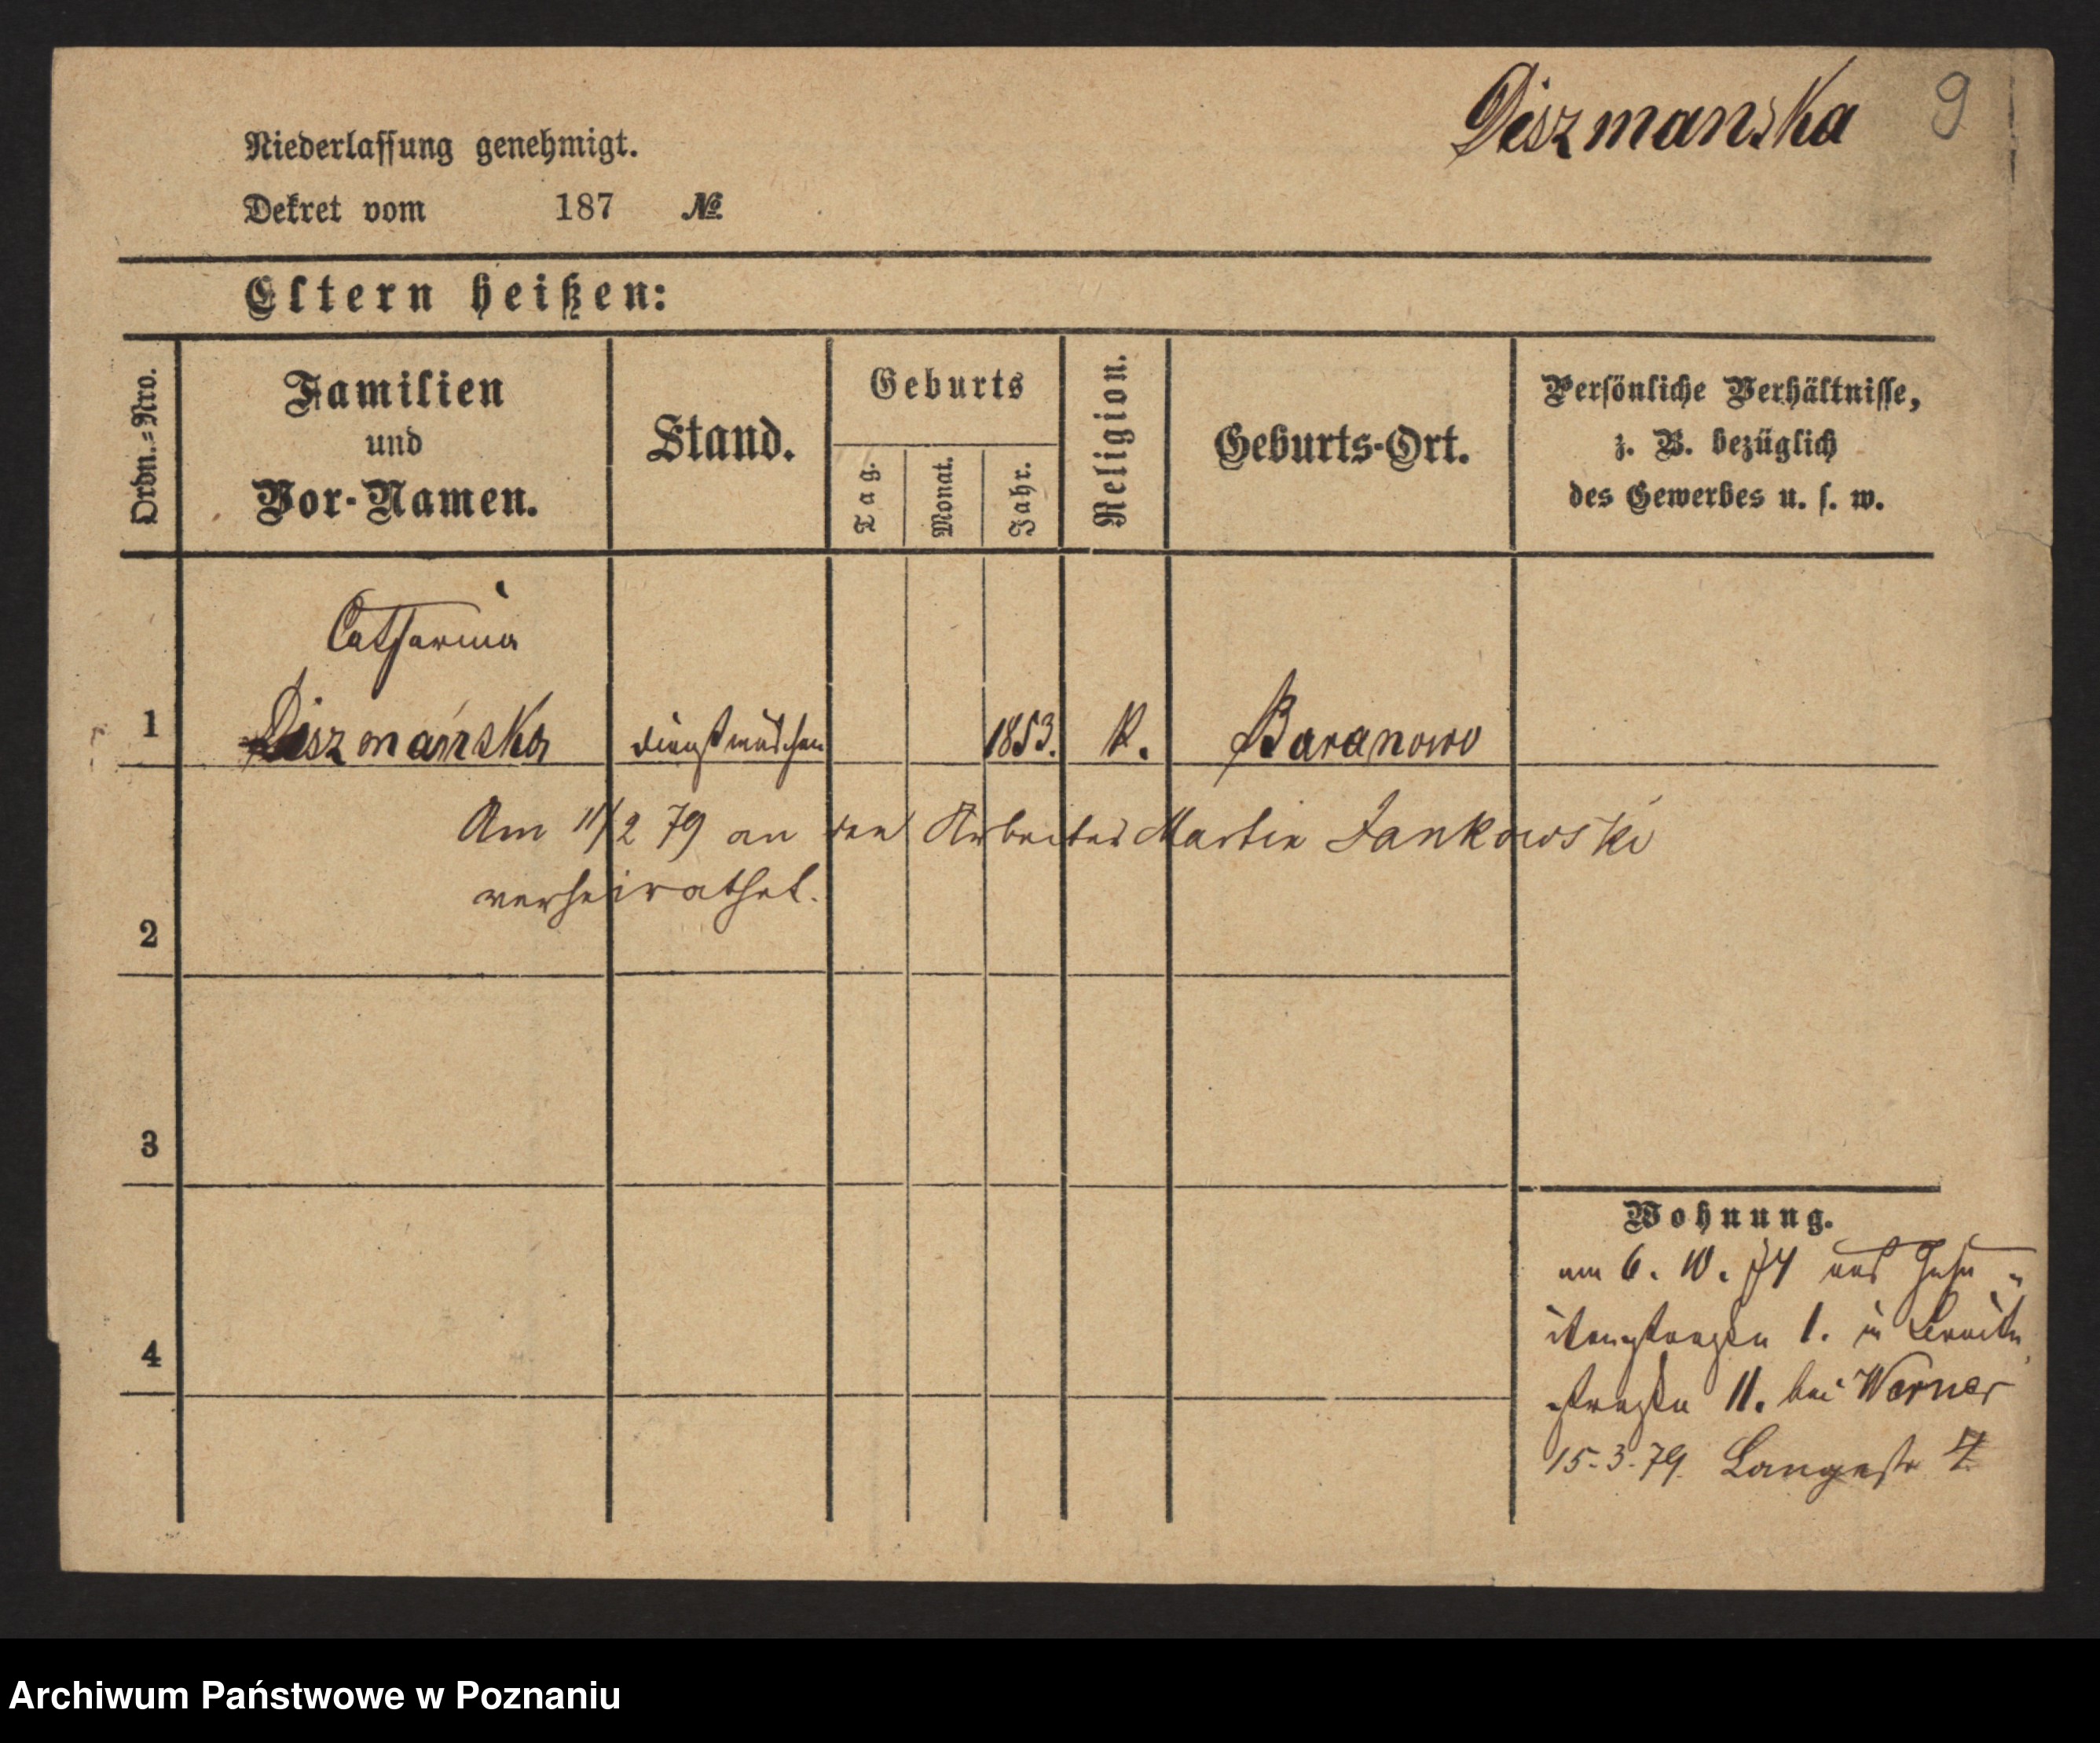 Diszmanska 9
Niederlassung genehmigt.
Dekret vom 187 №
Eltern heißen:
Ordn.-Nro.
Familien
und
Vor-Namen.
Stand.
Geburts
Tag.
Monat.
Jahr.
Religion.
Geburts-Ort.
Persönliche Verhältnisse,
z. B. bezüglich
des Gewerbes u. s. w.
Catharina
1 Diszmańska Dienstmädchen 1853. K. Baranowo
Am 11/2 79 an den Arbeiter Martin Jankowski
verheirathet.
2
3
4
Wohnung.
am 6. 10. 74 aus Jesu-
itenstraße 1. in Breite
straße 11. bei Werner
15-3-79. Langestr
Archiwum Państwowe w Poznaniu